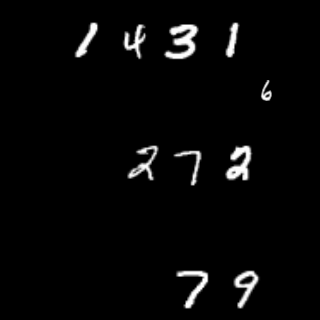 1431
6
272
79